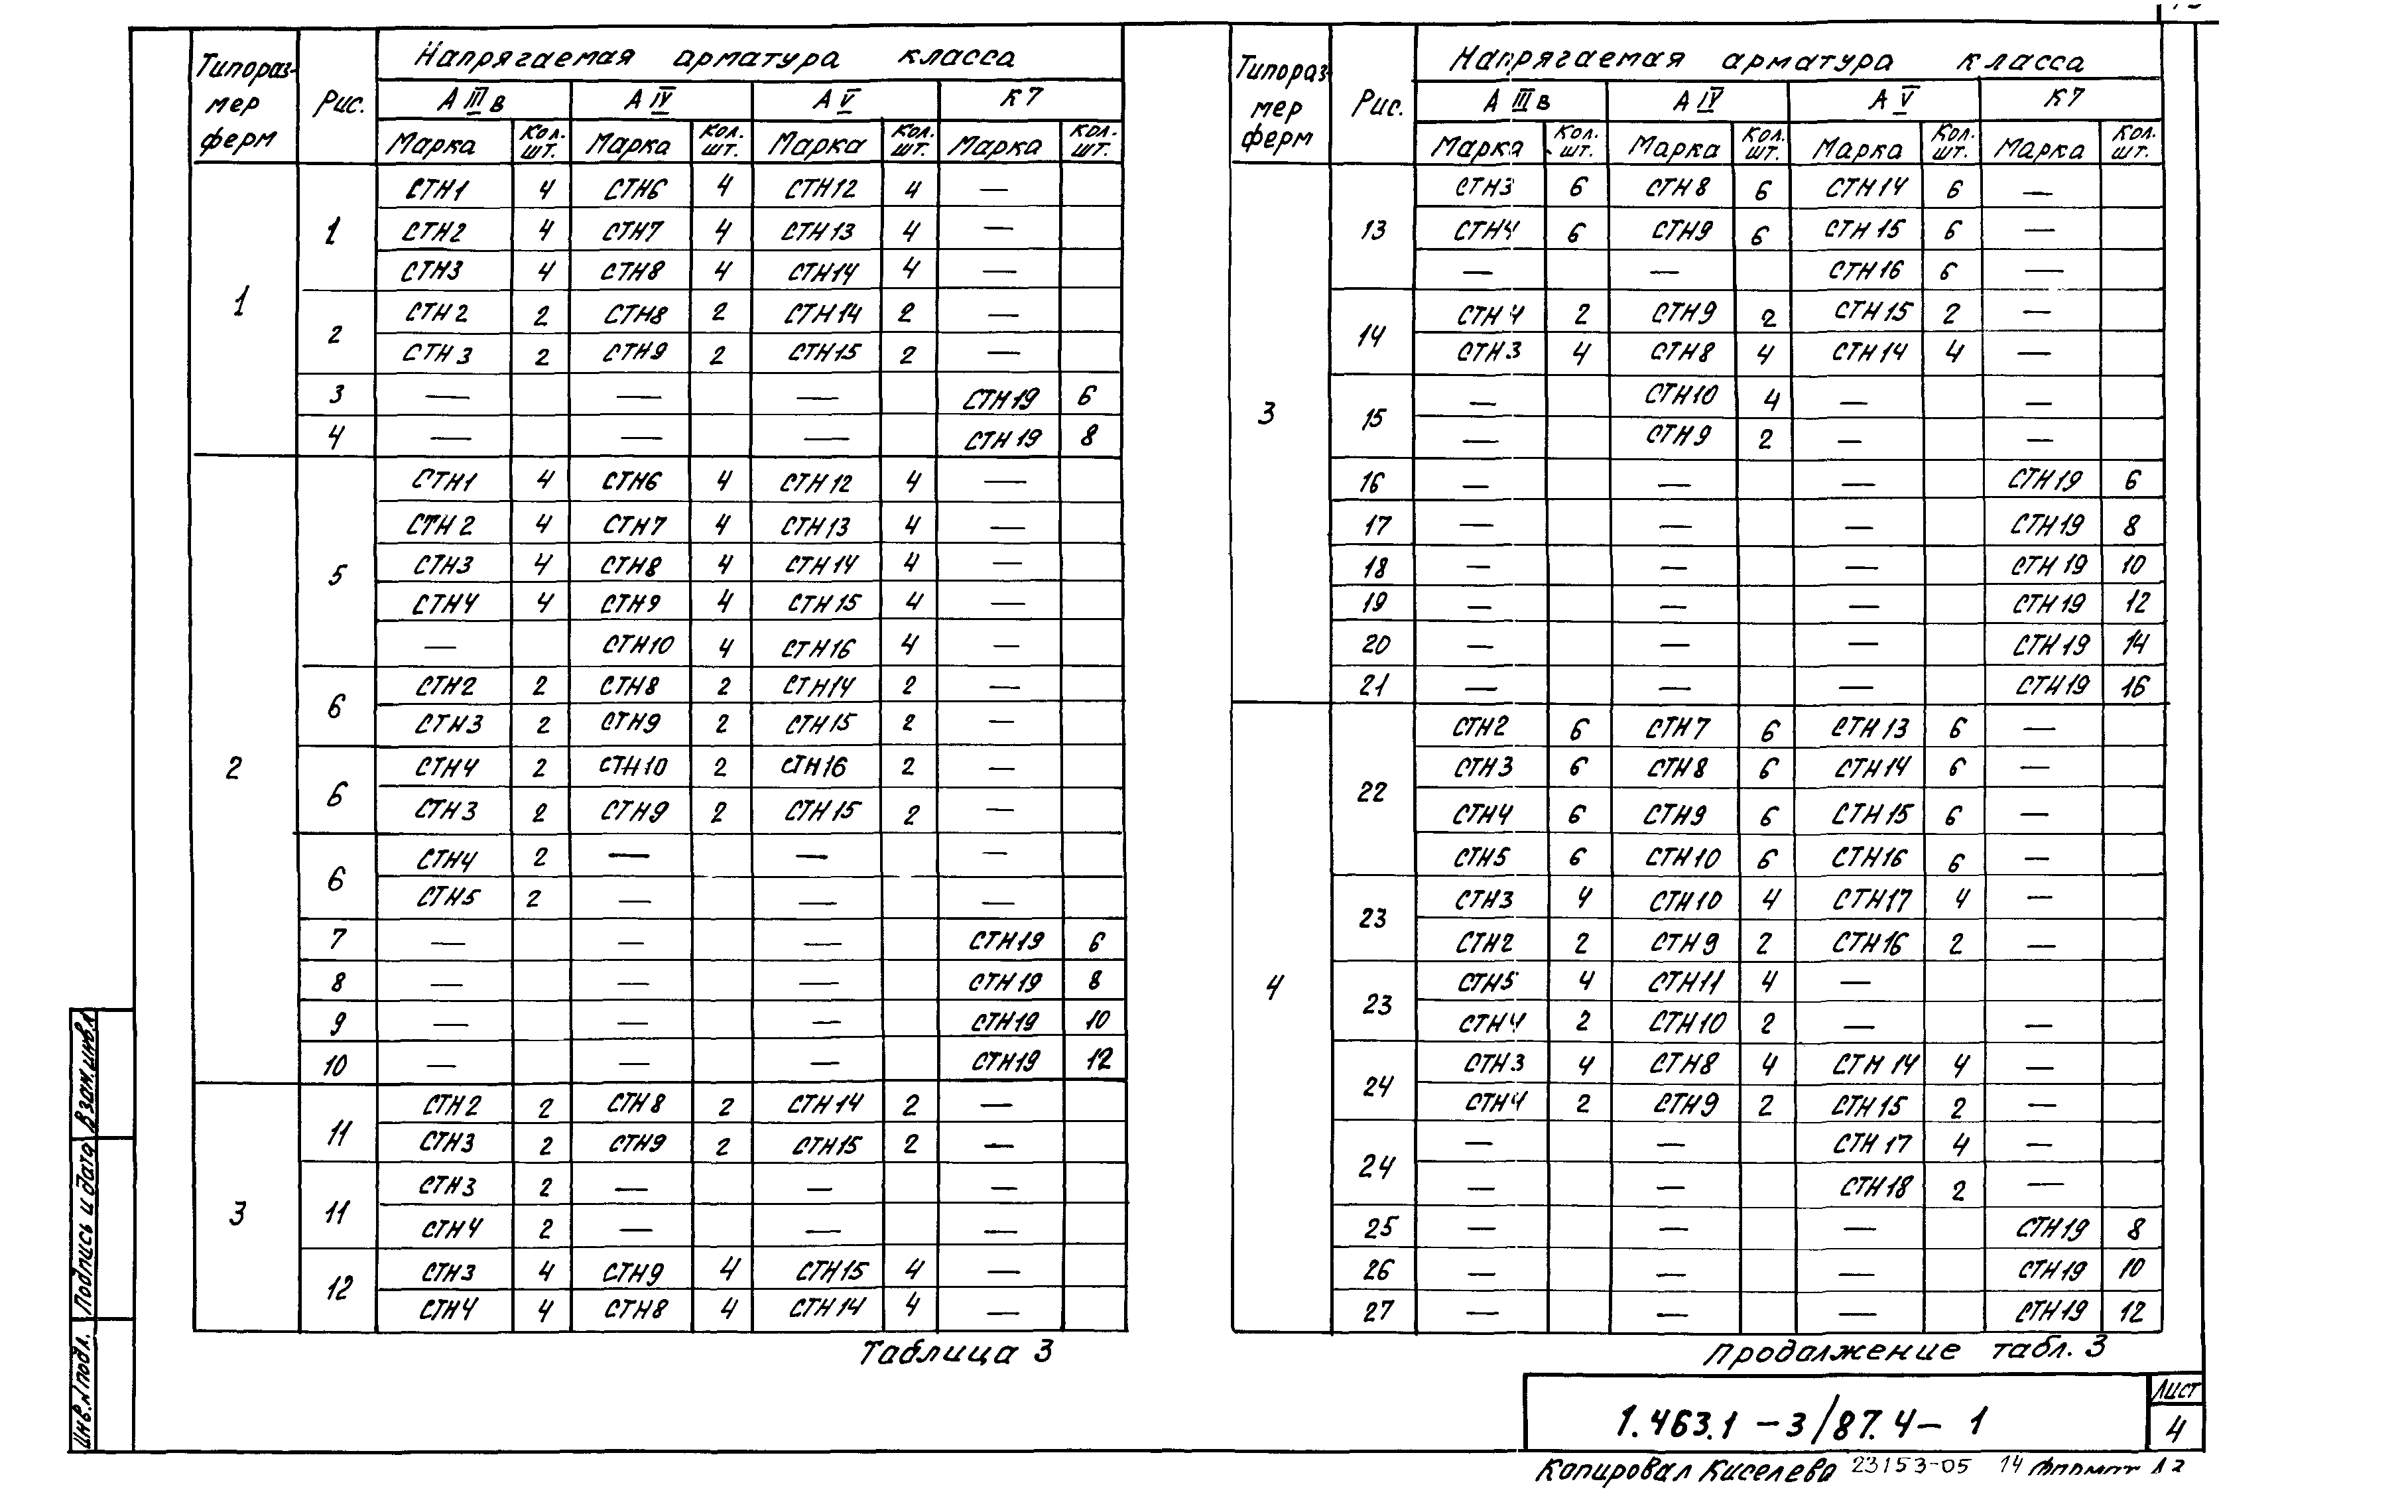 Типораз- Рис. Напрягаемая арматура класса
мер А III в А IV А V К7
ферм Марка Кол. шт. Марка Кол. шт. Марка Кол. шт. Марка Кол. шт.
1 1 СТН1 4 СТН6 4 СТН12 4 —
СТН2 4 СТН7 4 СТН13 4 —
СТН3 4 СТН8 4 СТН14 4 —
2 СТН2 2 СТН8 2 СТН14 2 —
СТН3 2 СТН9 2 СТН15 2 —
3 — — — СТН19 6
4 — — — СТН19 8
2 5 СТН1 4 СТН6 4 СТН12 4 —
СТН2 4 СТН7 4 СТН13 4 —
СТН3 4 СТН8 4 СТН14 4 —
СТН4 4 СТН9 4 СТН15 4 —
— СТН10 4 СТН16 4 —
6 СТН2 2 СТН8 2 СТН14 2 —
СТН3 2 СТН9 2 СТН15 2 —
6 СТН4 2 СТН10 2 СТН16 2 —
СТН3 2 СТН9 2 СТН15 2 —
6 СТН4 2 — — —
СТН5 2 — — —
7 — — — СТН19 6
8 — — — СТН19 8
9 — — — СТН19 10
10 — — — СТН19 12
3 11 СТН2 2 СТН8 2 СТН14 2 —
СТН3 2 СТН9 2 СТН15 2 —
11 СТН3 2 — — —
СТН4 2 — — —
12 СТН3 4 СТН9 4 СТН15 4 —
СТН4 4 СТН8 4 СТН14 4 —
Таблица 3
Типораз- Рис. Напрягаемая арматура класса
мер А III в А IV А V К7
ферм Марка Кол. шт. Марка Кол. шт. Марка Кол. шт. Марка Кол. шт.
3 13 СТН3 6 СТН8 6 СТН14 6 —
СТН4 6 СТН9 6 СТН15 6 —
— — СТН16 6 —
14 СТН4 2 СТН9 2 СТН15 2 —
СТН3 4 СТН8 4 СТН14 4 —
15 — СТН10 4 — —
— СТН9 2 — —
16 — — — СТН19 6
17 — — — СТН19 8
18 — — — СТН19 10
19 — — — СТН19 12
20 — — — СТН19 14
21 — — — СТН19 16
4 22 СТН2 6 СТН7 6 СТН13 6 —
СТН3 6 СТН8 6 СТН14 6 —
СТН4 6 СТН9 6 СТН15 6 —
СТН5 6 СТН10 6 СТН16 6 —
23 СТН3 4 СТН10 4 СТН17 4 —
СТН2 2 СТН9 2 СТН16 2 —
23 СТН5 4 СТН11 4 —
СТН4 2 СТН10 2 — —
24 СТН3 4 СТН8 4 СТН14 4 —
СТН4 2 СТН9 2 СТН15 2 —
24 — — СТН17 4 —
— — СТН18 2 —
25 — — — СТН19 8
26 — — — СТН19 10
27 — — — СТН19 12
Продолжение табл. 3
1.463.1-3/87.4-1
Лист
4
Копировал Киселева 23153-05 14 формат А3
Инв.№подл. Подпись и дата Взам.инв.№